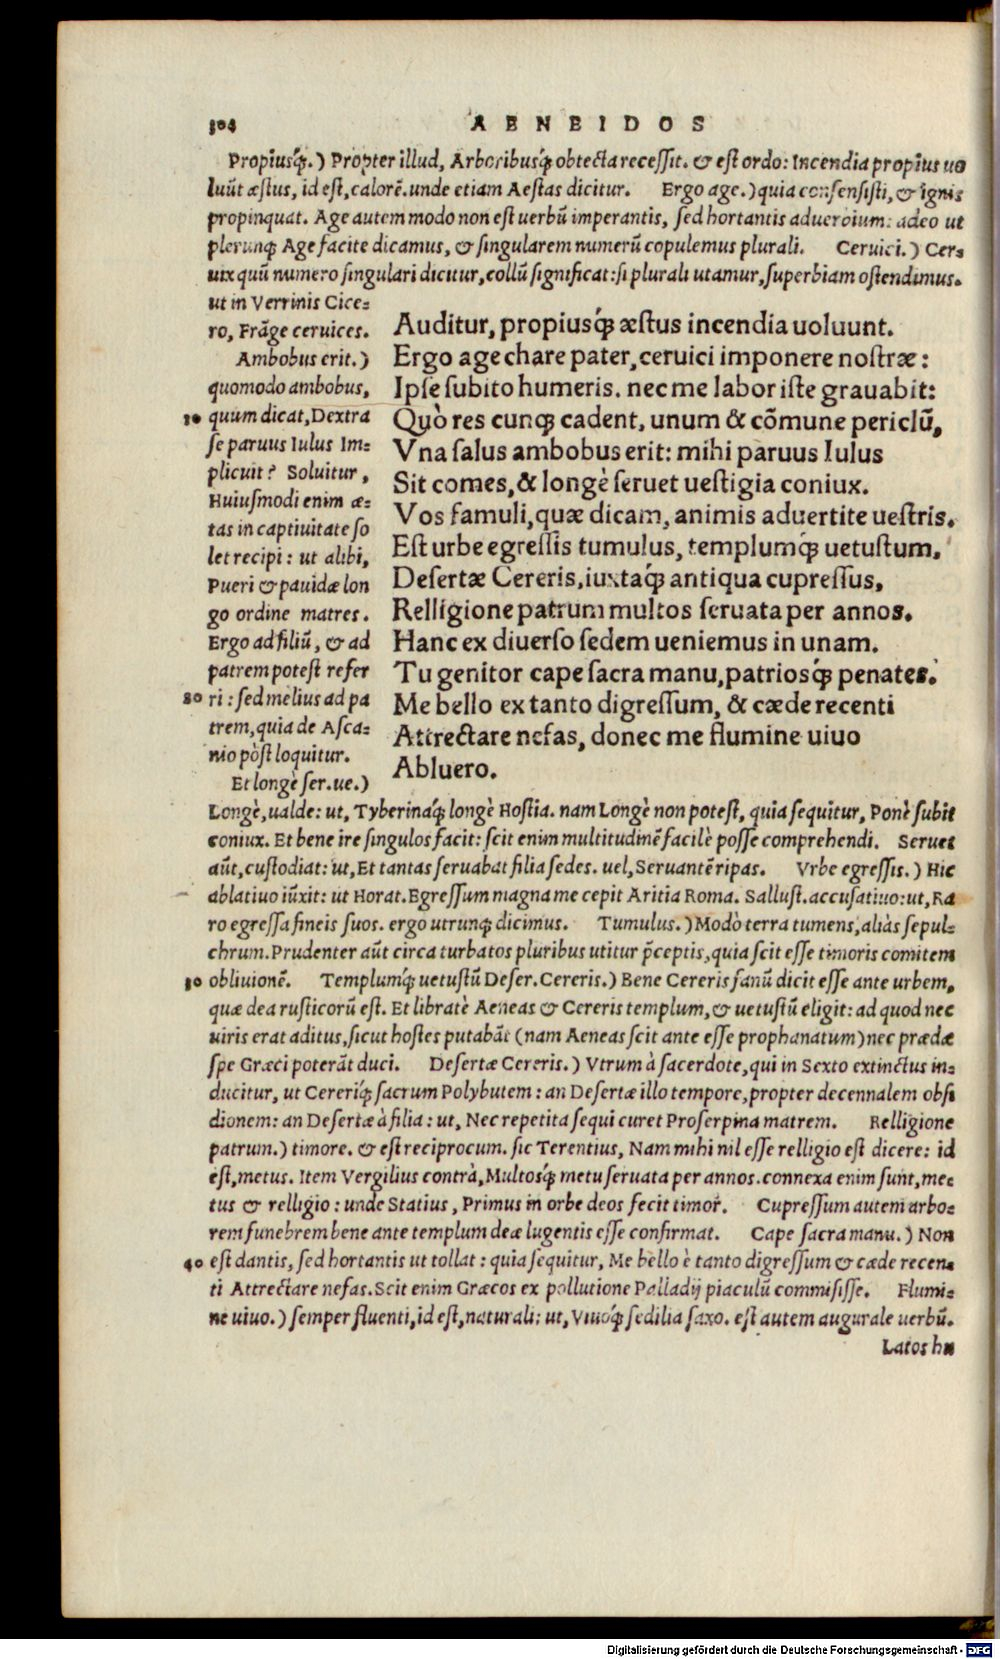 304 AENEIDOS
Propiusq́;.) Propter illud, Arboribusq́; obtecta recessit. & est ordo: Incendia propius uo
luũt æstus, id est, calorē. unde etiam Aestas dicitur. Ergo age.) quia consensisti, & ignis
propinquat. Age autem modo non est uerbũ imperantis, sed hortantis aduerbium: adeo ut
plerunq; Age facite dicamus, & singularem numerũ copulemus plurali. Ceruici.) Cer=
uix quũ numero singulari dicitur, collũ significat: si plurali utamur, superbiam ostendimus.
ut in Verrinis Cice=
ro, Frãge ceruices.
Ambobus erit.)
quomodo ambobus,
10 quum dicat, Dextra
se paruus Iulus Im=
plicuit? Soluitur,
Huiusmodi enim æ=
tas in captiuitate so
let recipi: ut alibi,
Pueri & pauidæ lon
go ordine matres.
Ergo ad filiũ, & ad
patrem potest refer
20 ri: sed melius ad pa
trem, quia de Asca=
nio pòst loquitur.
Et longè ser. ue.)
Auditur, propiusq́; æstus incendia uoluunt.
Ergo age chare pater, ceruici imponere nostræ:
Ipse subito humeris. nec me labor iste grauabit:
Quò res cunq; cadent, unum & cõmune periclũ,
Vna salus ambobus erit: mihi paruus Iulus
Sit comes, & longè seruet uestigia coniux.
Vos famuli, quæ dicam, animis aduertite uestris.
Est urbe egressis tumulus, templumq́; uetustum,
Desertæ Cereris, iuxtaq́; antiqua cupressus,
Relligione patrum multos seruata per annos.
Hanc ex diuerso sedem ueniemus in unam.
Tu genitor cape sacra manu, patriosq́; penates.
Me bello ex tanto digressum, & cæde recenti
Attrectare nefas, donec me flumine uiuo
Abluero.
Longè, ualde: ut, Tyberinaq́; longè Hostia. nam Longè non potest, quia sequitur, Ponè subit
coniux. Et bene ire singulos facit: scit enim multitudinē facilè posse comprehendi. Seruet
aũt, custodiat: ut, Et tantas seruabat filia sedes. uel, Seruantē ripas. Vrbe egressis.) Hic
ablatiuo iũxit: ut Horat. Egressum magna me cepit Aritia Roma. Sallust. accusatiuo: ut, Ra
ro egressa fineis suos. ergo utrunq; dicimus. Tumulus.) Modò terra tumens, aliàs sepul=
chrum. Prudenter aũt circa turbatos pluribus utitur p̃ceptis, quia scit esse timoris comitem
30 obliuionē. Templumq́; uetustũ Deser. Cereris.) Bene Cereris fanũ dicit esse ante urbem,
quæ dea rusticorũ est. Et libratè Aeneas & Cereris templum, & uetustũ eligit: ad quod nec
uiris erat aditus, sicut hostes putabãt (nam Aeneas scit ante esse prophanatum) nec prædæ
spe Græci poterãt duci. Desertæ Cereris.) Vtrum à sacerdote, qui in Sexto extinctus in=
ducitur, ut Cereriq́; sacrum Polybutem: an Desertæ illo tempore, propter decennalem obsi
dionem: an Desertæ à filia: ut, Nec repetita sequi curet Proserpina matrem. Relligione
patrum.) timore. & est reciprocum. sic Terentius, Nam mihi nil esse relligio est dicere: id
est, metus. Item Vergilius contrà, Multosq́; metu seruata per annos. connexa enim sunt, me=
tus & relligio: unde Statius, Primus in orbe deos fecit timor. Cupressum autem arbo=
rem funebrem bene ante templum deæ lugentis esse confirmat. Cape sacra manu.) Non
40 est dantis, sed hortantis ut tollat: quia sequitur, Me bello è tanto digressum & cæde recen=
ti Attrectare nefas. Scit enim Græcos ex pollutione Palladij piaculũ commisisse. Flumi=
ne uiuo.) semper fluenti, id est, naturali: ut, Viuoq́; sedilia saxo. est autem augurale uerbũ.
Latos hu
Digitalisierung gefördert durch die Deutsche Forschungsgemeinschaft - DFG